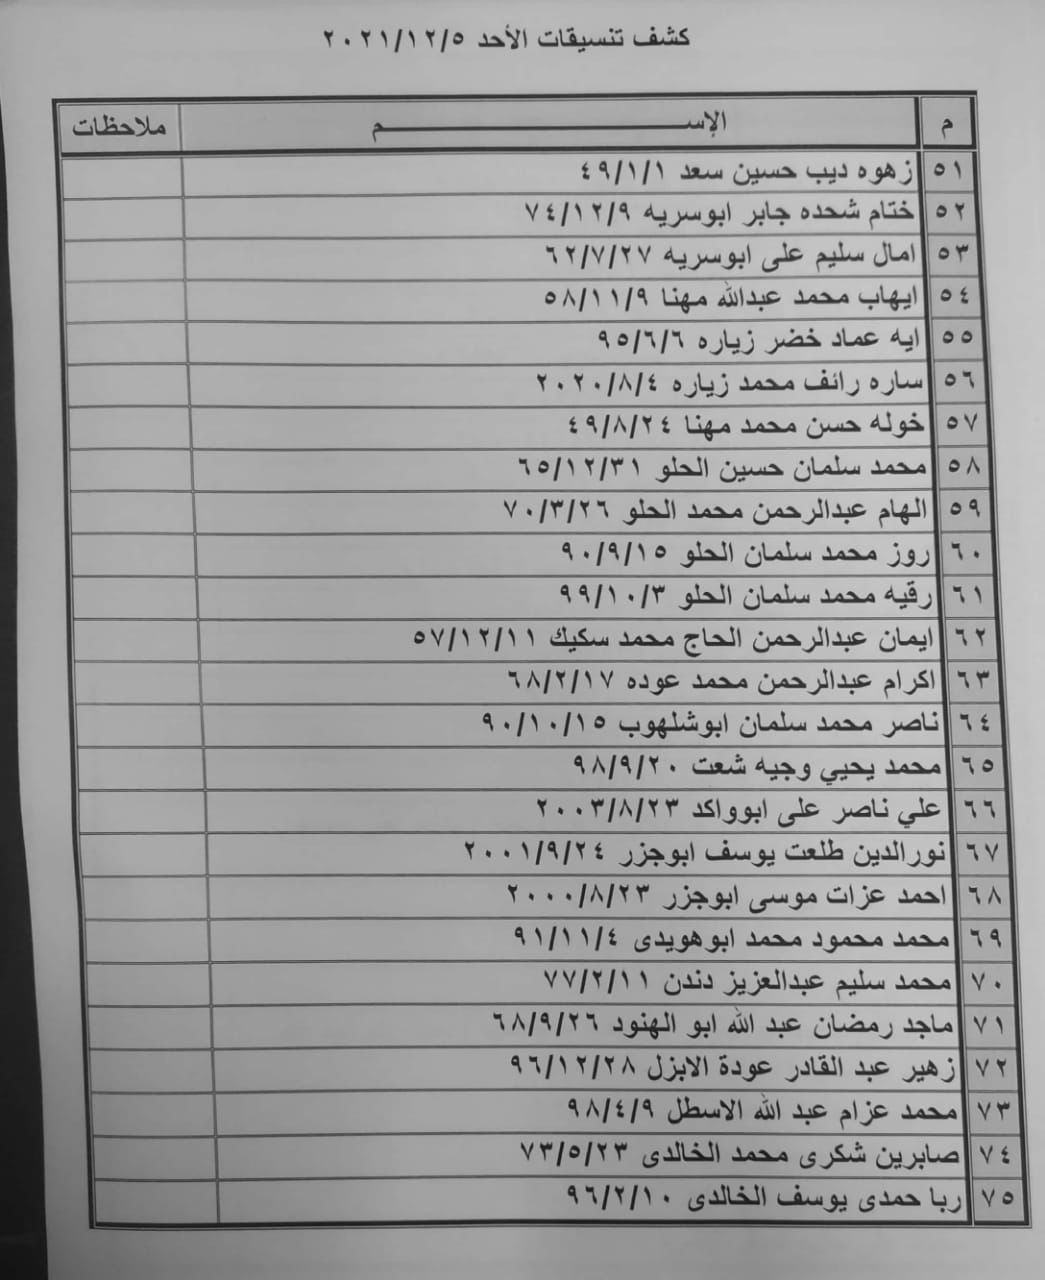 كشف تنسيقات الأحد ٢٠٢١/١٢/٥
م الإســـــــــــــــــــــــــــــــــم ملاحظات
٥١ زهوه ديب حسين سعد ٤٩/١/١
٥٢ ختام شحده جابر ابوسريه ٧٤/١٢/٩
٥٣ امال سليم على ابوسريه ٦٢/٧/٢٧
٥٤ ايهاب محمد عبدالله مهنا ٥٨/١١/٩
٥٥ ايه عماد خضر زياره ٩٥/٦/٦
٥٦ ساره رائف محمد زياره ٢٠٢٠/٨/٤
٥٧ خوله حسن محمد مهنا ٤٩/٨/٢٤
٥٨ محمد سلمان حسين الحلو ٦٥/١٢/٣١
٥٩ الهام عبدالرحمن محمد الحلو ٧٠/٣/٢٦
٦٠ روز محمد سلمان الحلو ٩٠/٩/١٥
٦١ رقيه محمد سلمان الحلو ٩٩/١٠/٣
٦٢ ايمان عبدالرحمن الحاج محمد سكيك ٥٧/١٢/١١
٦٣ اكرام عبدالرحمن محمد عوده ٦٨/٢/١٧
٦٤ ناصر محمد سلمان ابوشلهوب ٩٠/١٠/١٥
٦٥ محمد يحيي وجيه شعت ٩٨/٩/٢٠
٦٦ علي ناصر على ابوواكد ٢٠٠٣/٨/٢٣
٦٧ نورالدين طلعت يوسف ابوجزر ٢٠٠١/٩/٢٤
٦٨ احمد عزات موسى ابوجزر ٢٠٠٠/٨/٢٣
٦٩ محمد محمود محمد ابوهويدى ٩١/١١/٤
٧٠ محمد سليم عبدالعزيز دندن ٧٧/٢/١١
٧١ ماجد رمضان عبد الله ابو الهنود ٦٨/٩/٢٦
٧٢ زهير عبد القادر عودة الابزل ٩٦/١٢/٢٨
٧٣ محمد عزام عبد الله الاسطل ٩٨/٤/٩
٧٤ صابرين شكرى محمد الخالدى ٧٣/٥/٢٣
٧٥ ربا حمدى يوسف الخالدى ٩٦/٢/١٠